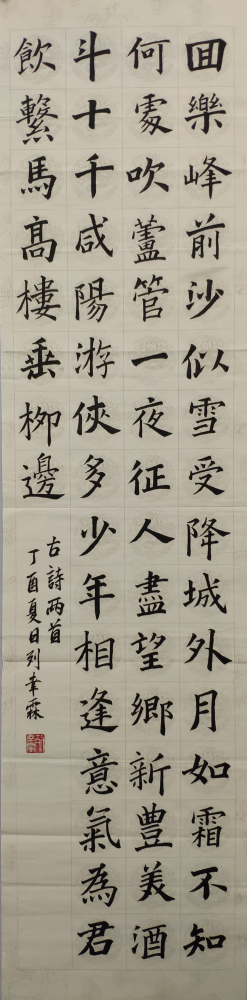 囬樂峰前沙似雪受降城外月如霜不知
何處吹蘆管一夜征人盡望鄉新豊美酒
斗十千咸陽游俠多少年相逢意氣為君
飲繫馬髙樓垂柳邊
古詩兩首
丁酉夏日